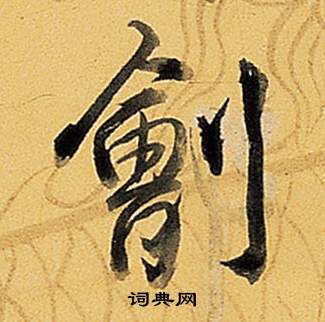 劊
词典网